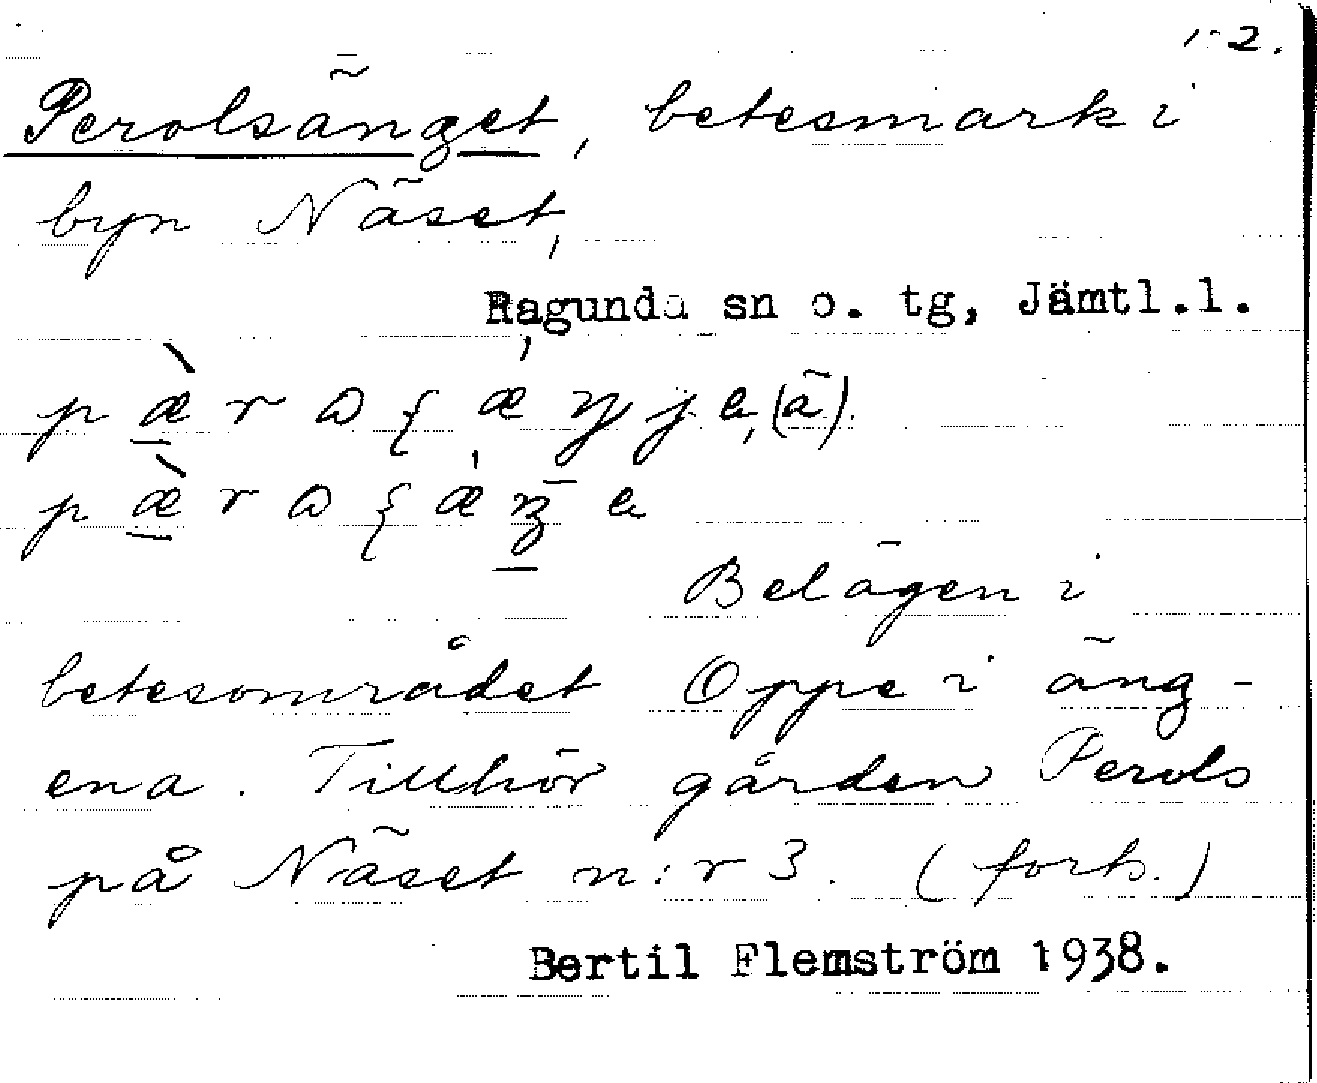 1-2.
Perolsänget, betesmark i
byn Näset,
Ragunda sn o. tg, Jämtl.l.
Belägen i
betesområdet Oppe i äng-
ena. Tillhör gården Perols
på Näset n:r 3. (forts.)
Bertil Flemström 1938.